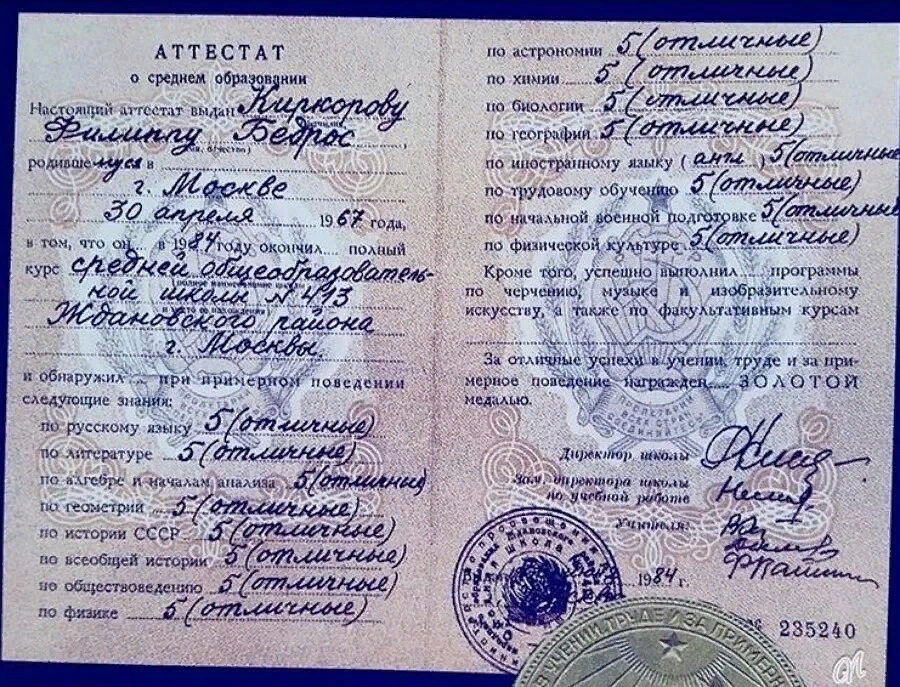 АТТЕСТАТ
о среднем образовании
Настоящий аттестат выдан Киркорову
Филиппу Бедрос
родившемуся в
г. Москве
30 апреля 1967 года,
в том, что он в 1984 году окончил полный
курс средней общеобразователь-
ной школы N 413
Ждановского района
г. Москвы.
и обнаружил при примерном поведении
следующие знания:
по русскому языку 5 (отличные)
по литературе 5 (отличные)
по алгебре и началам анализа 5 (отличные)
по геометрии 5 (отличные)
по истории СССР 5 (отличные)
по всеобщей истории 5 (отличные)
по обществоведению 5 (отличные)
по физике 5 (отличные)
по астрономии 5 (отличные)
по химии 5 (отличные)
по биологии 5 (отличные)
по географии 5 (отличные)
по иностранному языку (англ) 5 (отличные
по трудовому обучению 5 (отличные)
по начальной военной подготовке 5 (отличные
по физической культуре 5 (отличные)
Кроме того, успешно выполнил программы
по черчению, музыке и изобразительному
искусству, а также по факультативным курсам
За отличные успехи в учении, труде и за при-
мерное поведение награжден ЗОЛОТОЙ
медалью.
Директор школы
Зам. директора школы
по учебной работе
Учителя:
1984 г.
№ 235240
В УЧЕНИИ, ТРУДЕ И ЗА ПРИМЕРН